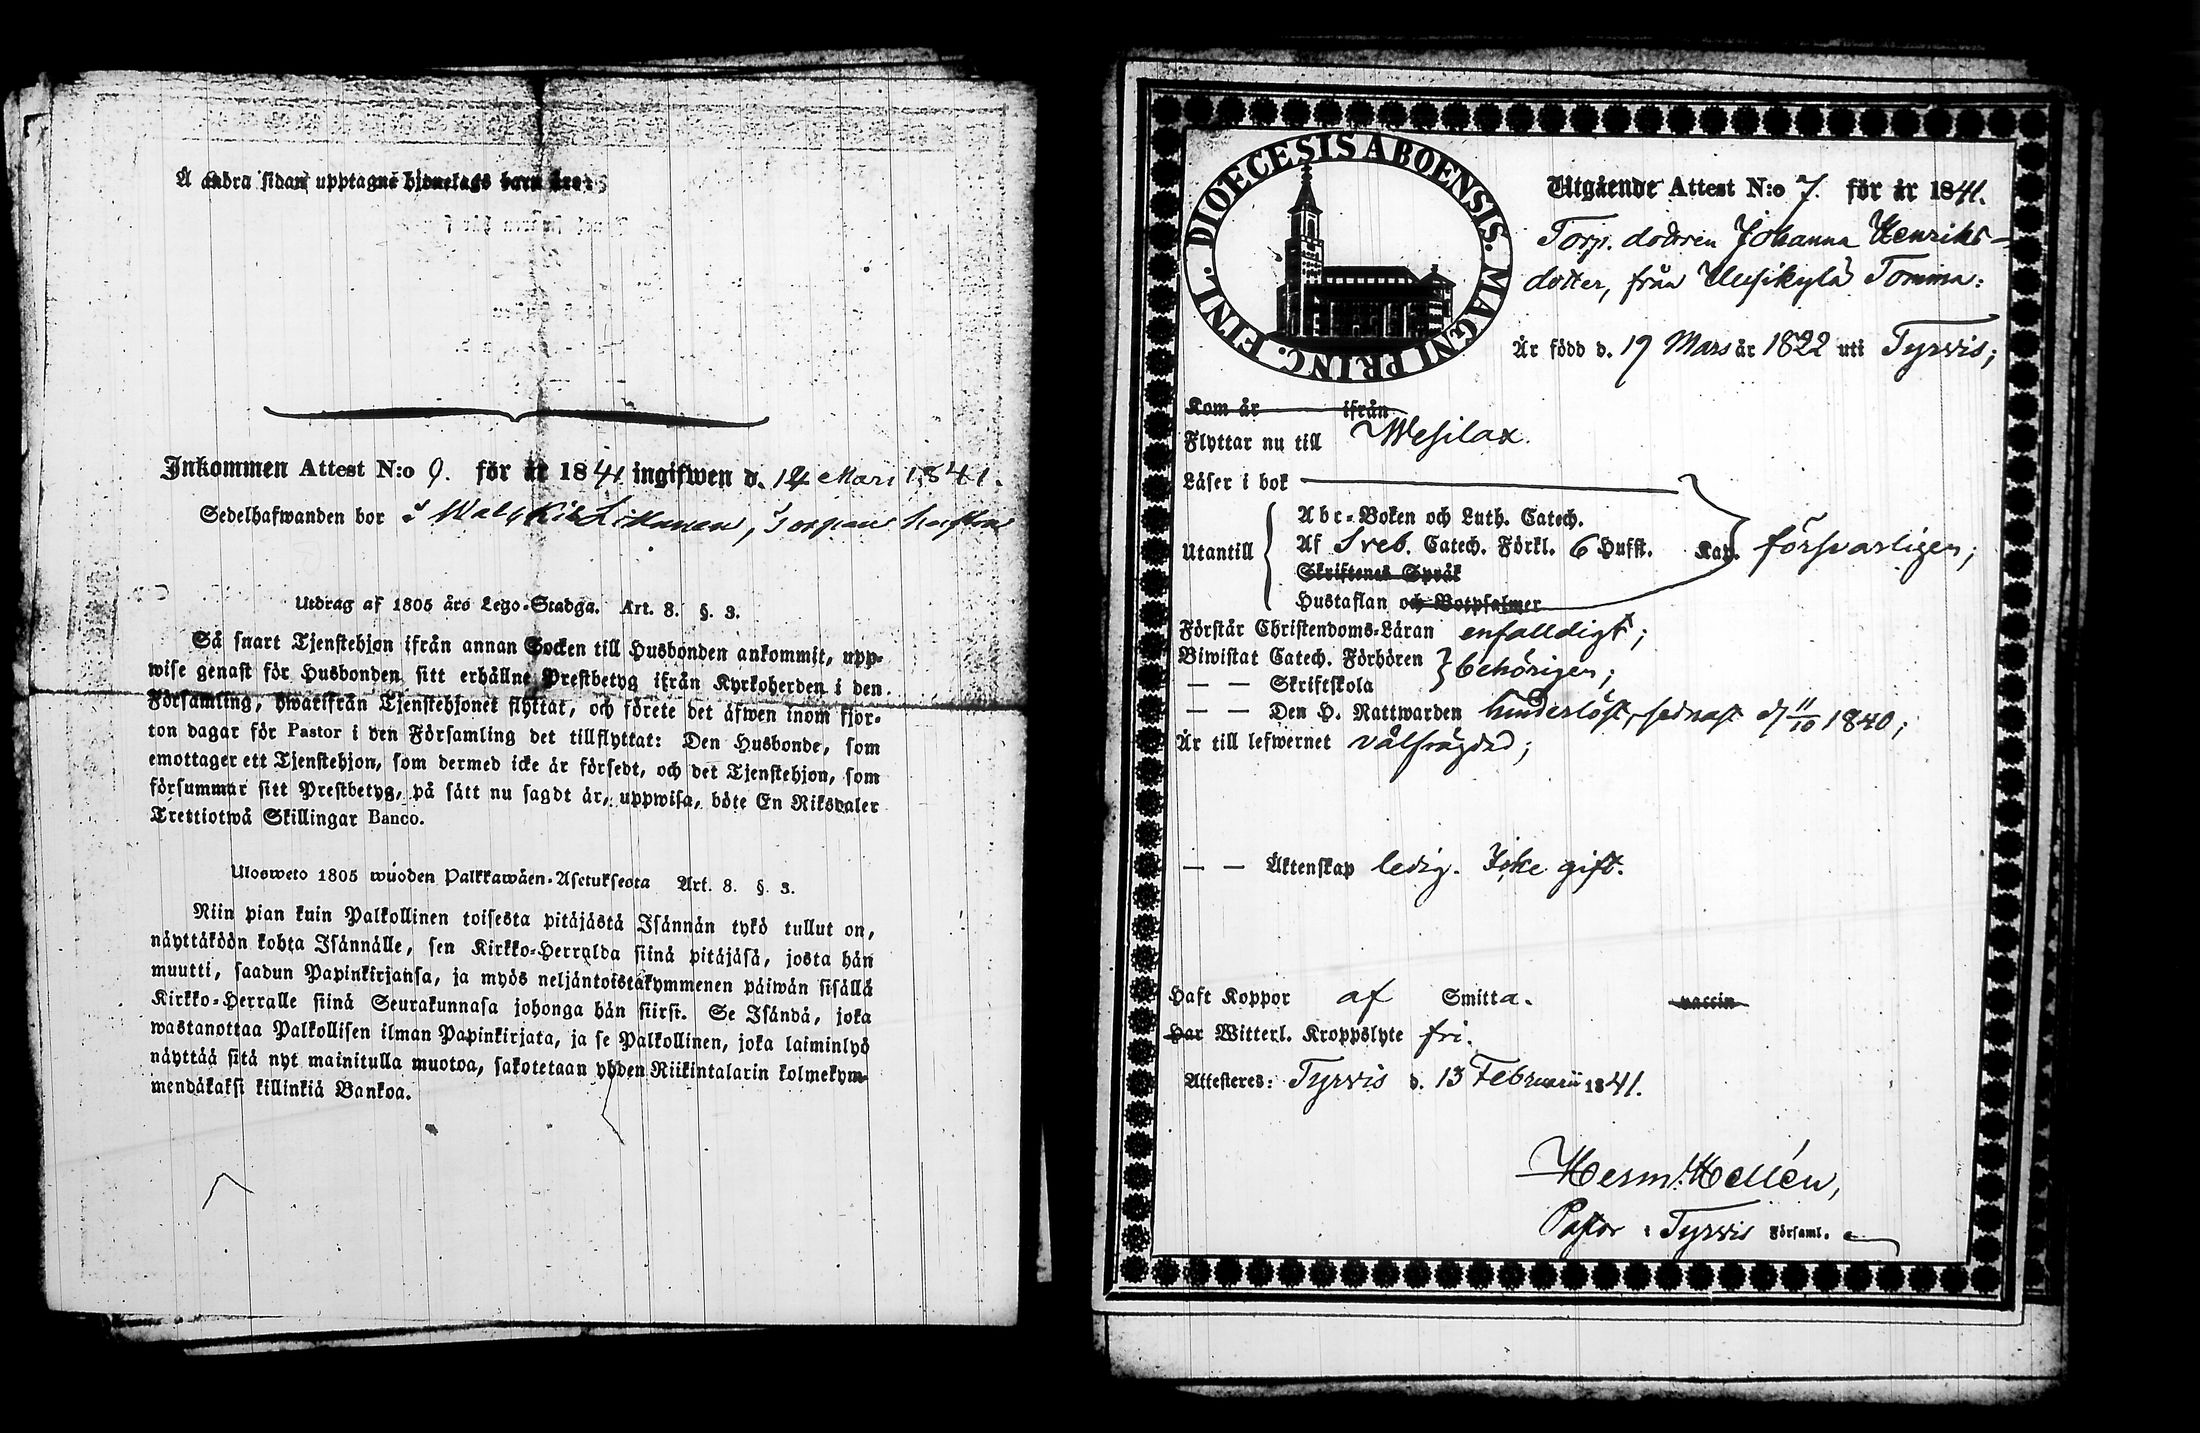 Å andra sidan upptagne hjonelags barn äro:
Inkommen Attest N:o 9. för år 1841 ingifwen d. 14 Mars 1841.
Sedelhafwanden bor i
Utdrag af 1805 års Lego-Stadga. Art. 8. §. 3.
Så snart Tjenstehjon ifrån annan Socken till Husbonden ankommit, upp-
wise genast för Husbonden sitt erhållne Prestbetyg ifrån Kyrkoherden i den
Församling, hwarifrån Tjenstehjonet flyttat, och förete det äfwen inom fjor-
ton dagar för Pastor i den Församling det tillflyttat: Den Husbonde, som
emottager ett Tjenstehjon, som dermed icke är försedt, och det Tjenstehjon, som
försummar sitt Prestbetyg, på sätt nu sagdt är, uppwisa, böte En Riksdaler
Trettiotwå Skillingar Banco.
Ulosweto 1805 wuoden Palkkawäen-Asetuksesta Art. 8. §. 3.
Niin pian kuin Palkollinen toisesta pitäjästä Isännän tykö tullut on,
näyttäköön kohta Isännälle, sen Kirkko-Herralda siinä pitäjäsä, josta hän
muutti, saadun Papinkirjansa, ja myös neljäntoistakymmenen päiwän sisällä
Kirkko-Herralle siinä Seurakunnasa johonga hän siirst. Se Isändä, joka
wastanottaa Palkollisen ilman Papinkirjata, ja se Palkollinen, joka laiminlyö
näyttää sitä nyt mainitulla muotoa, sakotetaan yhden Riikintalarin kolmekym-
mendäkaksi killinkiä Bankoa.
DIOECESIS ABOENSIS. MAGNI PRINC. FINL.
Utgående Attest N:o 7. för år 1841.
Torp. dottren Johanna Henriks-
dotter, från Uusikylä Tomma:
Är född d. 19 Mars år 1822 uti Tyrvis;
Kom år ifrån
Flyttar nu till Wesilax.
Läser i bok
Abc-Boken och Luth. Catech.
Utantill Af Sveb. Catech. Förkl. 6 Hufst. Kap. försvarligen;
Skriftenes Språk
Hustaflan och Botpsalmer
Förstår Christendoms-Läran enfalldigt;
Biwistat Catech. Förhören behörigen;
— — Skriftskola
— — Den H. Nattwarden hinderlöst, sednast d 11/10 1840;
Är till lefwernet välfrägdad;
— — Äktenskap ledig. Icke gift.
Haft Koppor af Smitta. vaccin
Har Witterl. Kroppslyte fri.
Attesteres: Tyrvis d. 13 Februarii 1841.
Herm. Hellén,
Pastor i Tyrvis Församl.